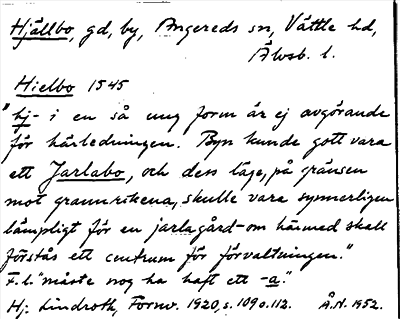 Hjällbo, gd, by, Angereds sn, Vättle hd,
Älvsb. l.
Hielbo 1545
"hj- i en så ung form är ej avgörande
för härledningen. Byn kunde gott vara
ett Jarlabo, och dess läge, på gränsen
mot grannrikena, skulle vara synnerligen
lämpligt för en jarlagård - om härmed skall
förstås ett centrum för förvaltningen."
F. l. "måste nog ha haft ett -a."
Hj. Lindroth, Fornv. 1920, s. 109 o. 112. Å.H. 1952.